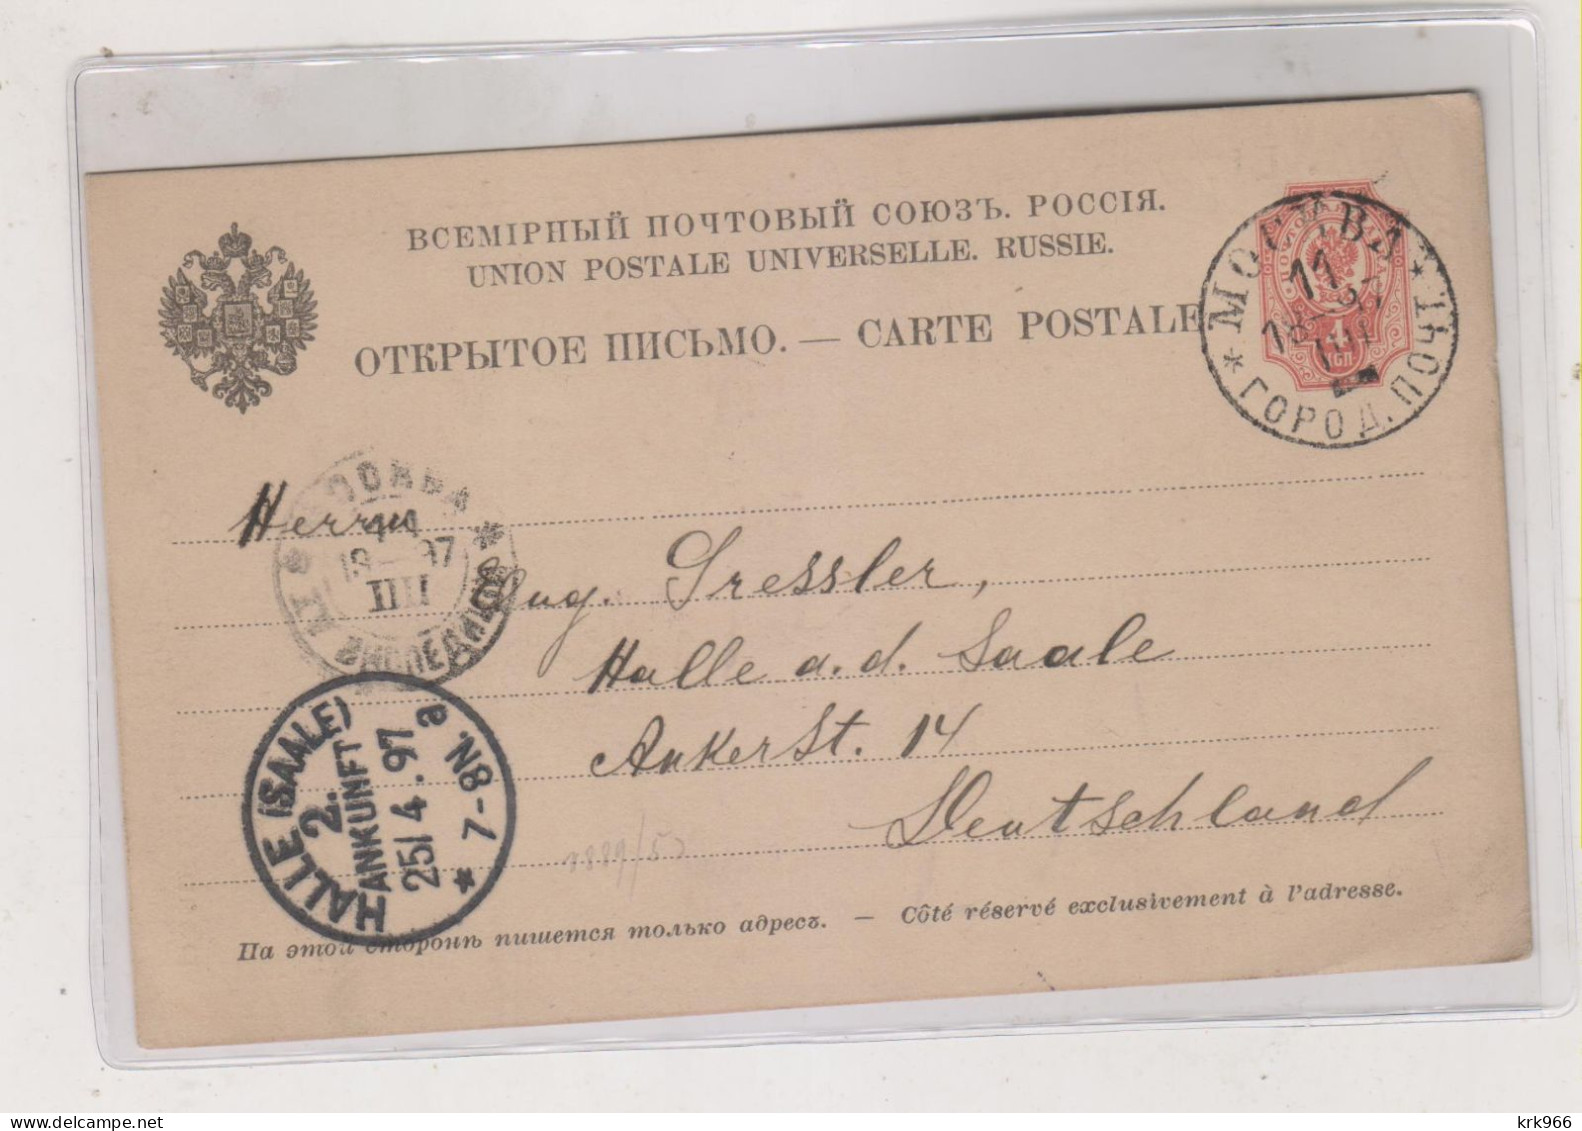 ВСЕМІРНЫЙ ПОЧТОВЫЙ СОЮЗЪ. РОССІЯ.
UNION POSTALE UNIVERSELLE. RUSSIE.
ОТКРЫТОЕ ПИСЬМО. — CARTE POSTALE
МОСКВА
11
18 97
ГОРОД. ПОЧТ.
Herrn
Eug. Gressler,
Halle a. d. Saale
Ankerst. 14
Deutschland
МОСКВА
11
97
HALLE (SAALE)
2.
ANKUNFT
25/4.97
7-8N. a
На этой сторонѣ пишется только адресъ. — Côté réservé exclusivement à l'adresse.
krk966